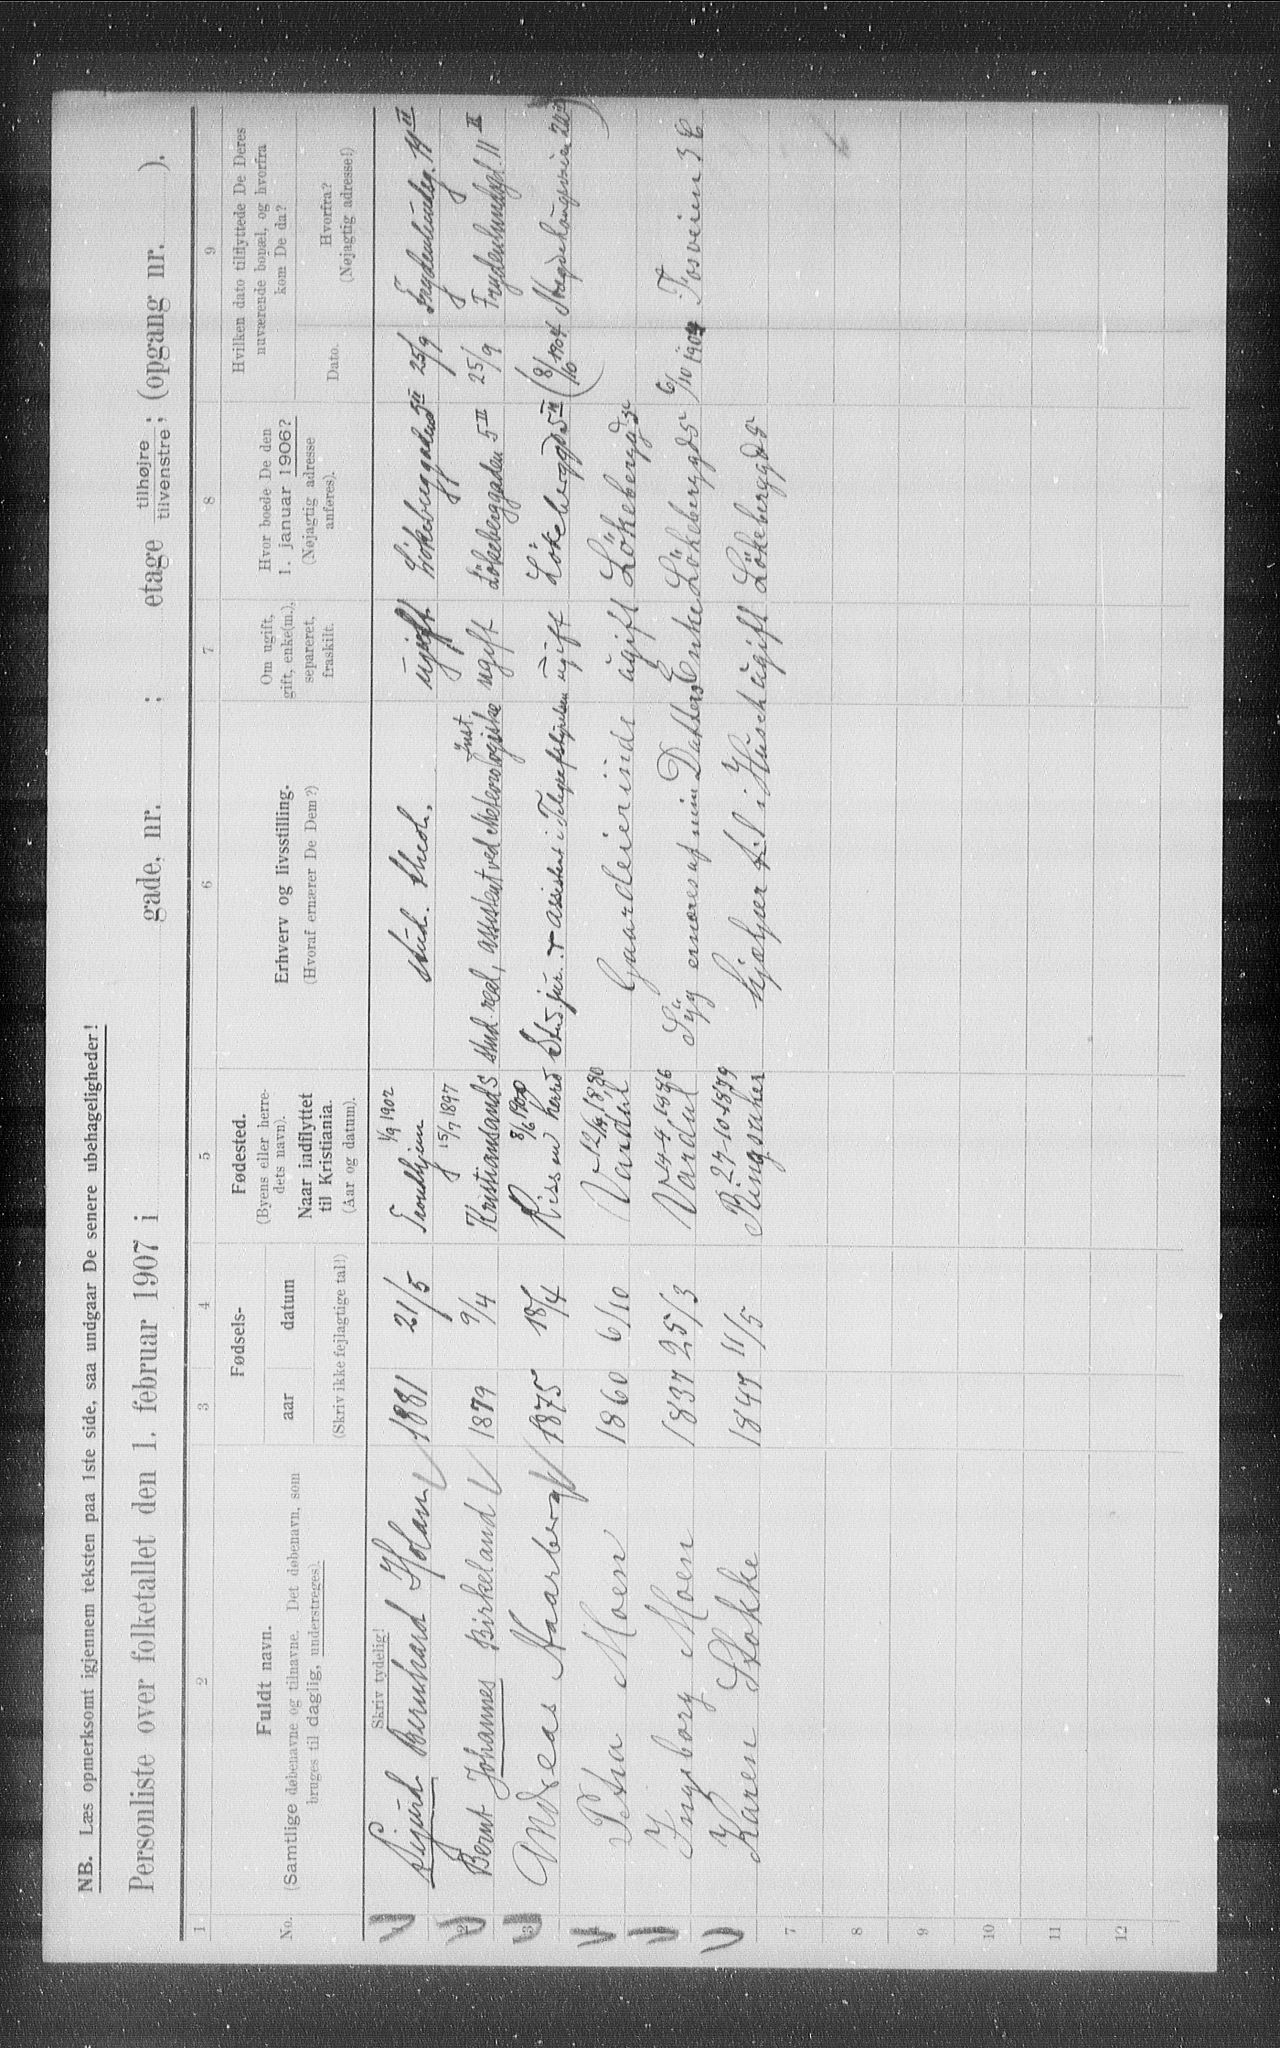 NB. Læs opmerksomt igjennem teksten paa 1ste side, saa undgaar De senere ubehageligheder!
Personliste over folketallet den 1. februar 1907 i gade, nr. ; etage tilhøjre tilvenstre; (opgang nr. ).
1 2 3 4 5 6 7 8 9
No.
Fuldt navn.
(Samtlige døbenavne og tilnavne. Det døbenavn, som
bruges til daglig, understreges).
Fødsels-
aar datum
(Skriv ikke fejlagtige tal!)
Fødested.
(Byens eller herre-
dets navn).
Naar indflyttet
til Kristiania.
(Aar og datum).
Erhverv og livsstilling.
(Hvoraf ernærer De Dem?)
Om ugift,
gift, enke(m.),
separeret,
fraskilt.
Hvor boede De den
1. januar 1906?
(Nøjagtig adresse
anføres).
Hvilken dato tilflyttede De Deres
nuværende bopæl, og hvorfra
kom De da?
Dato.
Hvorfra?
(Nøjagtig adresse!)
Skriv tydelig!
1 Sigurd Bernhard Holan 1881 21/5 Trondhjem 1/9 1902 stud. theol. ugift Lökeberggaden 5 II 25/9 Frydenlundg. 11 II
2 Bernt Johannes Birkeland 1879 9/4 Kristiansands 15/7 1897 stud. real, assistent ved Meteorologiske Inst. ugift Lökeberggaden 5 II 25/9 Frydenlundgd. 11 II
3 Andreas Haarberg 1875 18/4 Rissen herred 8/6 1900 Stud. jur. + assistent i Telegrafstyrelsen ugift Lökeberggd 5 II (8/10 1904
4 Petra Moen 1860 6/10 Vardal 12/14 1880 Gaardeierinde ugift Lökeberggd 5
5 Ingeborg Moen 1837 25/3 Vardal 14-4 1886 Syg ernæres af min Datter Enke Lökeberggd 5 6/10 1904 Fosveien 3 C
6 Karen Stokke 1847 11/5 Ringsaker 24-10-1879 hjælper til i Huset ugift Lökeberggd 5
7
8
9
10
11
12